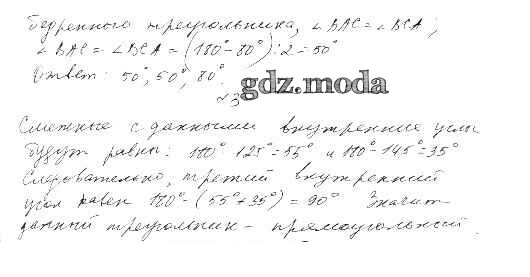 бедренного треугольника, ∠ BAC = ∠ BCA ;
∠ BAC = ∠ BCA = (180° - 80°) : 2 = 50°
Ответ: 50°, 50°, 80°.
gdz.moda
№3
Смежные с данными внутренние углы
будут равны: 180° 125° = 55° и 180° - 145° = 35°
Следовательно, третий внутренний
угол равен 180° - (55° + 35°) = 90° Значит
данный треугольник - прямоугольный.